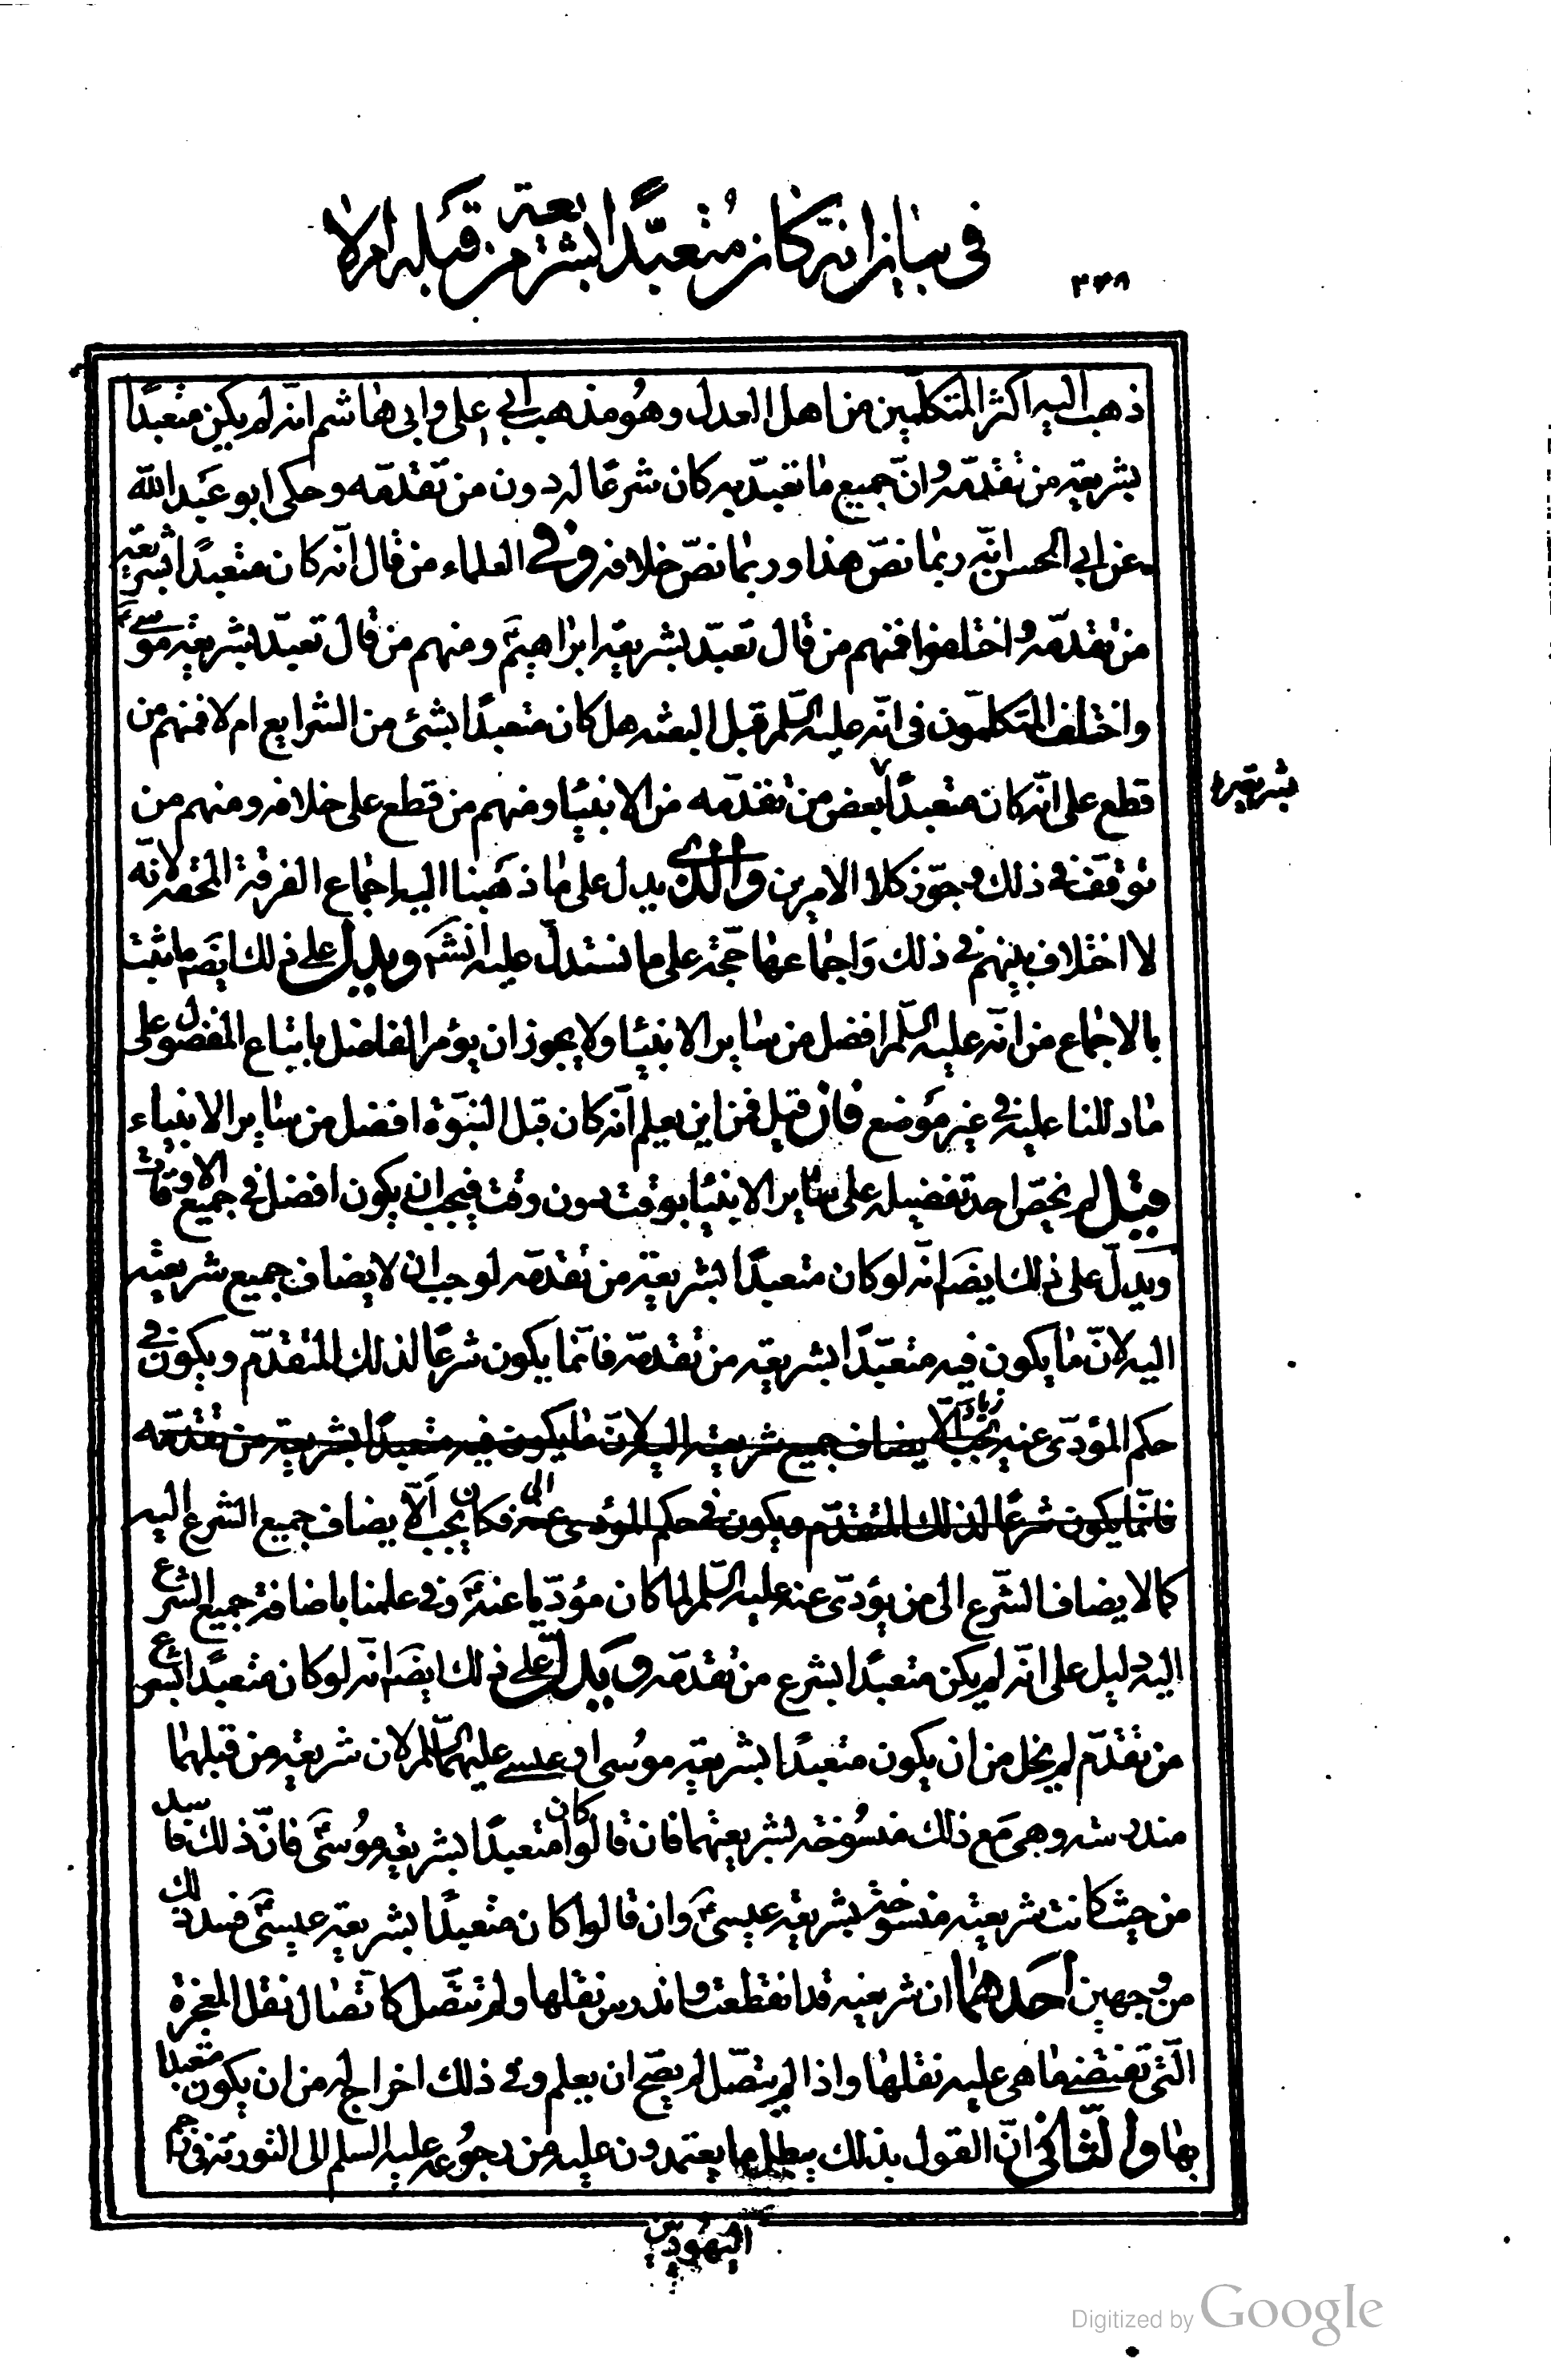 في بيان انه كان متعبدا بشريعة من قبله ام لا
٢٣٨
ذهب اليه اكثر المتكلّمين من اهل العدل وهو مذهب ابي علي وابي هاشم انّه لم يكن متعبدًا
بشريعة من تقدّمه وانّ جميع ما تعبّد به كان شرعًا له دون من تقدّمه وحكى ابو عبد الله
عن ابي الحسن انّه ربما نصّ هذا وربما نصّ خلافه وفي العلماء من قال انّه كان متعبدًا بشريعة
من تقدّمه واختلفوا فمنهم من قال تعبّد بشريعة ابراهيم ع ومنهم من قال تعبّد بشريعة موسى ع
واختلف المتكلّمون في انّه عليه السّلم قبل البعثه هل كان متعبدًا بشئ من الشرايع ام لا فمنهم من
قطع على انّه كان متعبدًا بعض من تقدّمه من الانبيا ومنهم من قطع على خلافه ومنهم من
بشريعة
توقّف في ذلك وجوّز كلا الامرين والّذي يدل على ما ذهبنا اليه اجماع الفرقة المحقه لانّه
لا اختلاف بينهم في ذلك واجماعها حجّة على ما نستدلّ عليه انش ويدلّ على ذلك ايضَا ما ثبت
بالاجماع من انّه عليه السّلم افضل من ساير الانبيا ولا يجوز ان يؤمر الفاضل باتباع المفضول على
ما دللنا عليه في غير موضع فان قيل فمن اين يعلم انّه كان قبل النبوّة افضل من ساير الانبياء
قيل لم نخصّ احد تفضيله على ساير الانبيا بوقت دون وقت فيجب ان يكون افضل في جميع الاوقات
ويدلّ على ذلك ايضَا انّه لو كان متعبدًا بشريعة من تقدّمه لوجب ان لا يضاف جميع شريعته
اليه لانّ ما يكون فيه متعبّدًا بشريعة من تقدمه فانّما يكون شرعًا لذلك المتقدّم ويكون في
حكم المؤدّى عنه يجب الّا يضاف جميع شريعته اليه لانّ ما يكون فيه متعبدًا بشريعة من تقدّمه
فانّما يكون شرعًا لذلك المتقدّم ويكون في حكم المؤدى عنه الى فكان يجب الّا يضاف جميع الشرع اليه
كما لا يضاف الشّرع الى من يؤدّى عنه عليه السّلم لما كان مؤدّيا عنه وفي علمنا باضافة جميع الشرع
اليه دليل على انّه لم يكن متعبدًا بشرع من تقدّمه ويدلّ على ذلك ايضَا انّه لو كان متعبدًا بشرع
من تقدّم لم يخل من ان يكون متعبدًا بشريعة موسى او عيسى عليهما السّلم لان شريعة من قبلهما
مندرسه وهي مع ذلك منسوخة بشريعتهما فان قالوا كان متعبدًا بشريعة موسى ع فانّ ذلك فاسد
من حيث كانت شريعته منسوخة بشريعة عيسى ع وان قالوا كان متعبدًا بشريعة عيسى ع فسد ذلك
من وجهين احدهما ان شريعته قد انقطعت واندرس نقلها ولم تتّصل كاتّصال نقل المعجزة
الّتي تقتضي ما هي عليه نقلها واذا لم يتصّل لم يصحّ ان يعلم وفي ذلك اخراج له من ان يكون متعبدا
بها والثّاني انّ القول بذلك يبطل ما يعتمدون عليه من رجوعه عليه السّلم الى التورية في رجم
اليهوديين
Digitized by Google